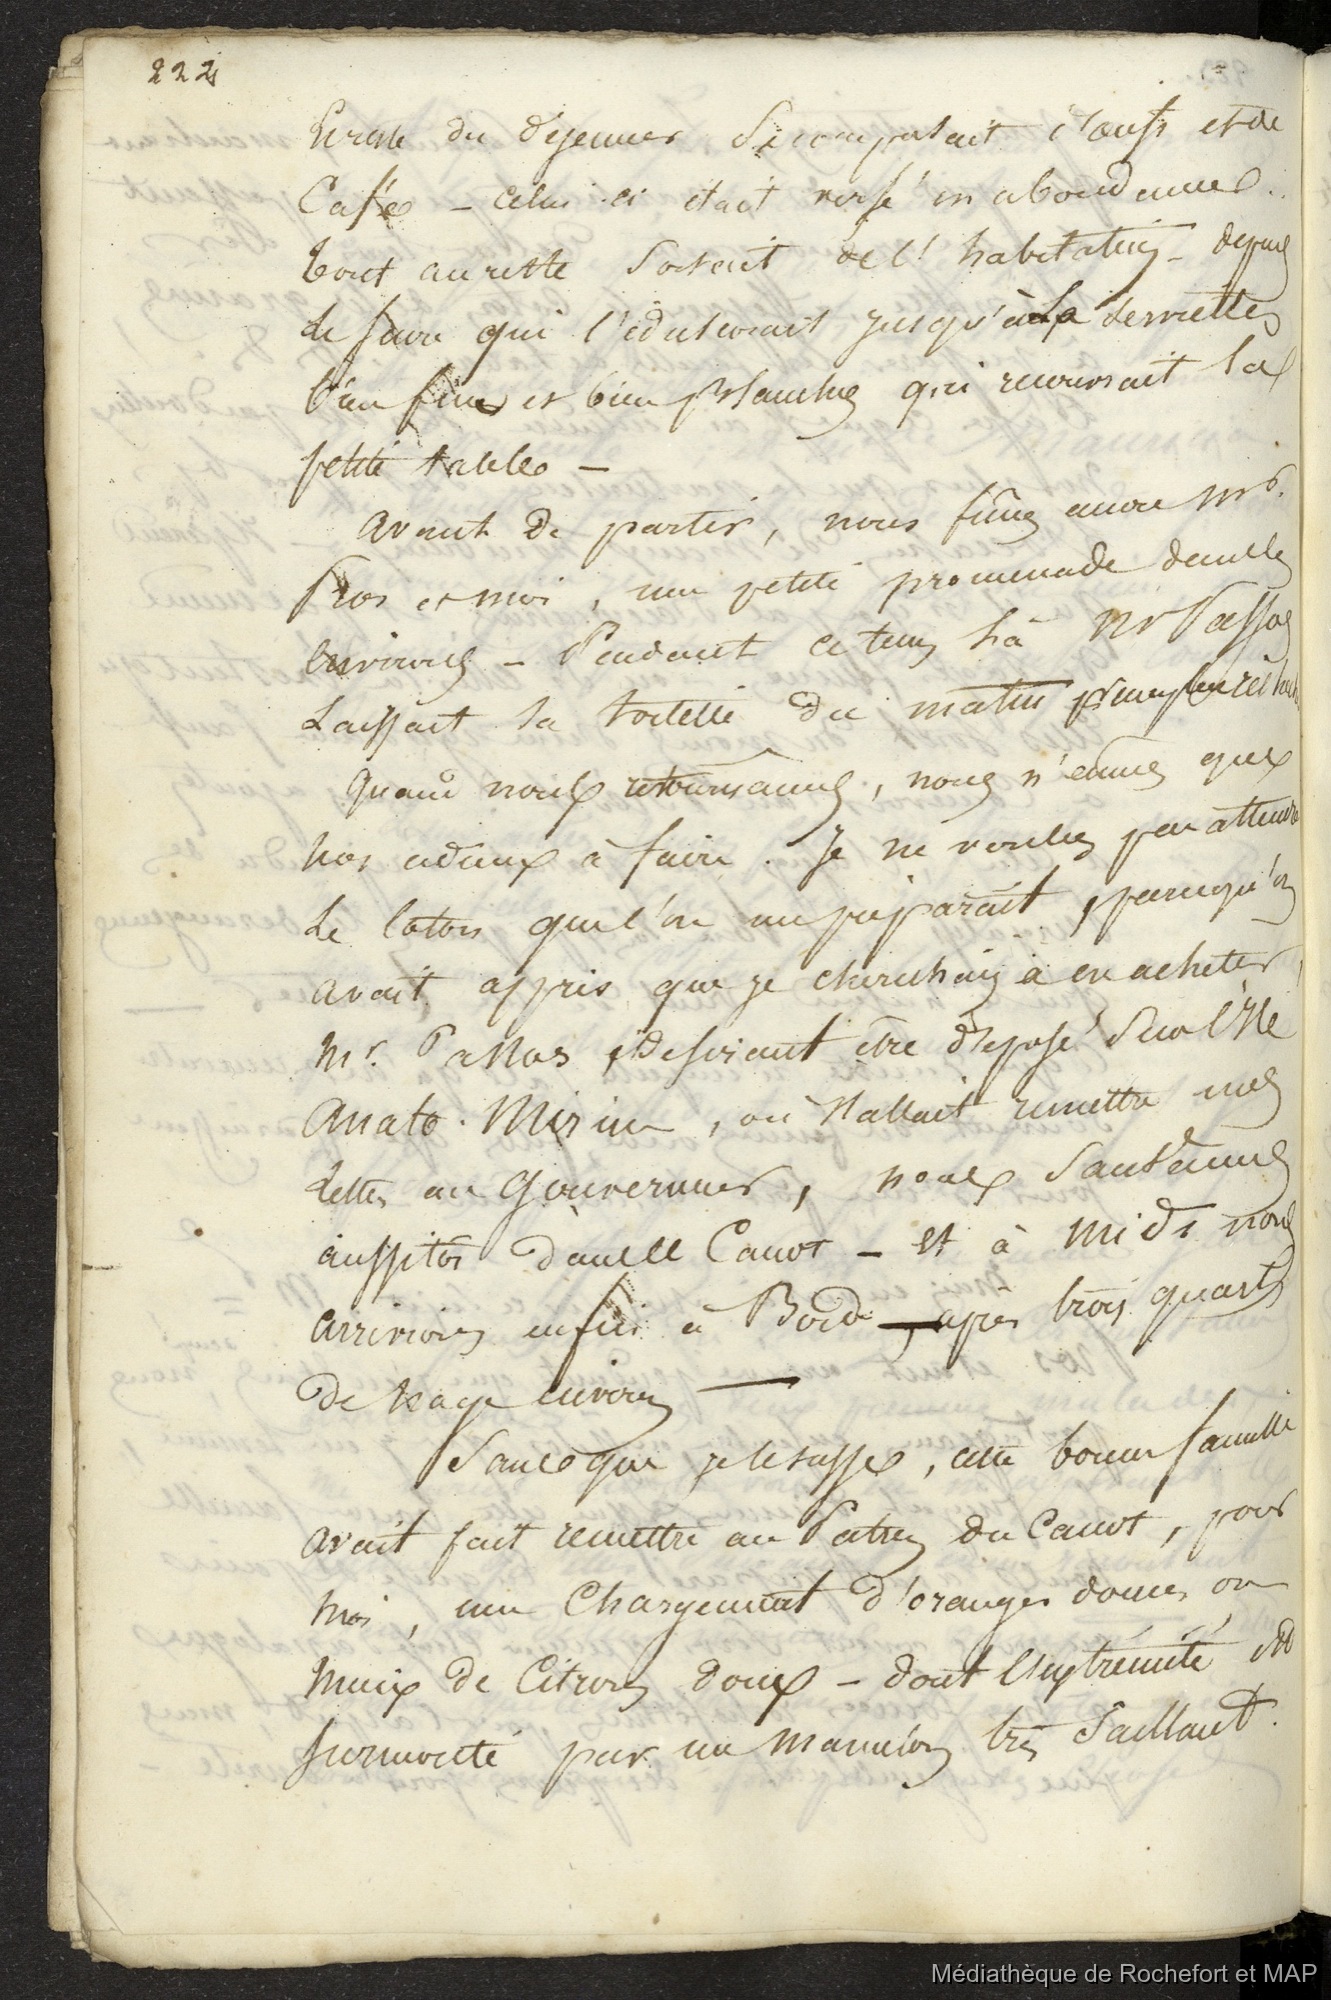 222
du déjeuner se composait d'oeufs et de
Café – celui-ci était versé en abondance.
tout au reste sortait de l'habitation – depuis
le sucre qui l'édulcorait jusqu'à la serviette
bien fine et bien blanche qui recouvrait la
petite table –
avant de partir, nous fûmes encore Mr.
Pros et moi, une petite promenade dans les
environs – Pendant ce tems là Mr
Laissait la toilette du matin
Quand nous retournames, nous n'eûmes que
nos adieux à faire. Je ne voulus pas attendre
le coton que l'on me préparait, parcequ'on
avait appris que je cherchais à en acheter,
Mr. désirant être déposé sur l'Ile
Anato-Mirim, où il allait remettre mes
lettres au Gouverneur, nous sautâmes
aussitôt dans le Canot – et à midi nous
arrivions enfin à Bord, après trois quarts
de nage environ —
Sans que je le susse, cette bonne famille
avait fait remettre au Patron du Canot, pour
moi, un Chargement d'oranges douces ou
mieux de Citrons doux – dont l'extrémité est
surmontée par un mamelon très saillant.
Médiathèque de Rochefort et MAP